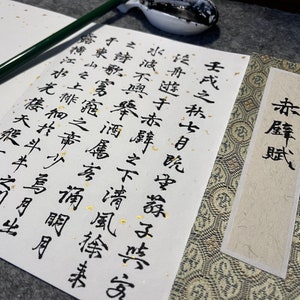 赤壁賦
壬戌之秋七月既望蘇子與客
泛舟遊于赤壁之下清風徐來
水波不興舉酒屬客誦明月
之詩歌窈窕之章少焉月出
於東山之上徘徊於斗牛之
露橫江水光接天縱一